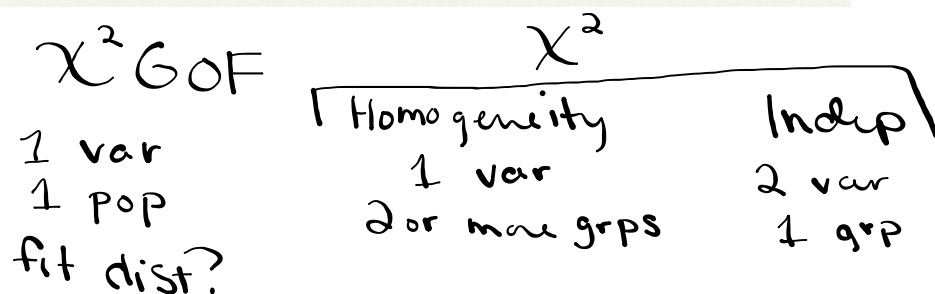 χ² GOF
1 var
1 pop
fit dist?
χ²
Homogeneity
1 var
2 or more grps
Indep
2 var
1 grp